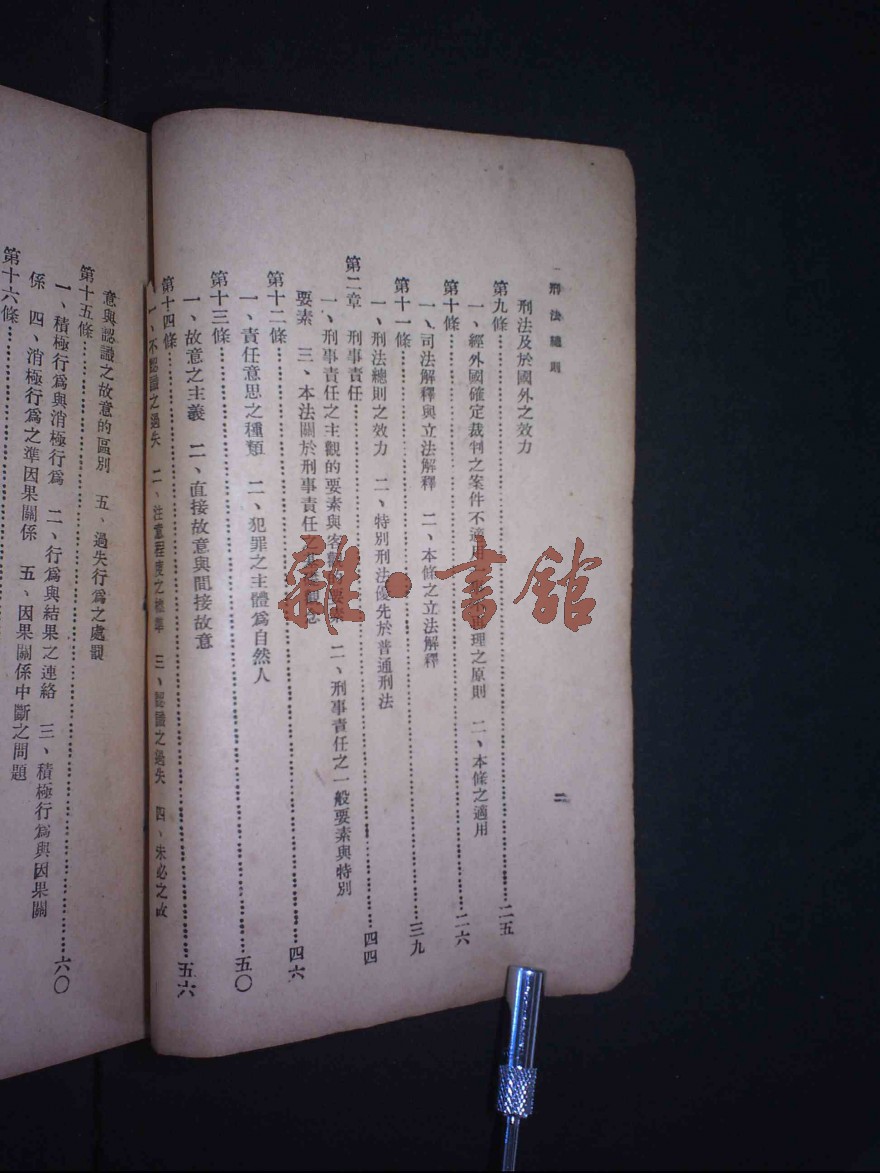 刑法總則
二
刑法及於國外之效力
第九條……二五
一、經外國確定裁判之案件不適用 理之原則 二、本條之適用
第十條……二六
一、司法解釋與立法解釋 二、本條之立法解釋
第十一條……三九
一、刑法總則之效力 二、特別刑法優先於普通刑法
第二章 刑事責任……四四
一、刑事責任之主觀的要素與客觀 要素 二、刑事責任之一般要素與特別
要素 三、本法關於刑事責任之
第十二條……四六
一、責任意思之種類 二、犯罪之主體爲自然人
第十三條……五〇
一、故意之主義 二、直接故意與間接故意
第十四條……五六
一、不認識之過失 二、注意程度之標準 三、認識之過失 四、未必之故
意與認識之故意的區別 五、過失行爲之處罰
第十五條……六〇
一、積極行爲與消極行爲 二、行爲與結果之連絡 三、積極行爲與因果關
係 四、消極行爲之準因果關係 五、因果關係中斷之問題
第十六條……
雜·書館